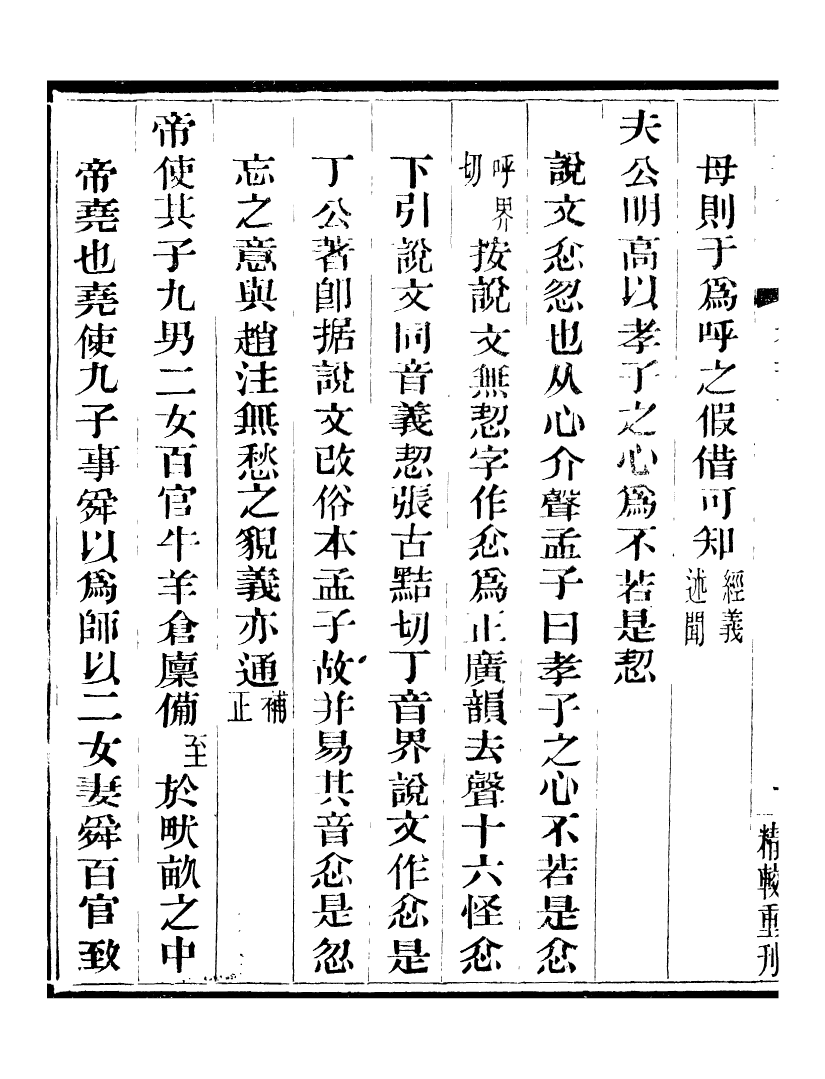 精較重刊
母則于為呼之假借可知經義述聞
夫公明高以孝子之心為不若是恝
說文忿忽也从心介聲孟子曰孝子之心不若是忿
呼界切按說文無恝字作忿為正廣韻去聲十六怪忿
下引說文同音義恝張古黠切丁音界說文作忿是
丁公著卽据說文改俗本孟子故并易其音忿是忽
忘之意與趙注無愁之貌義亦通補正
帝使其子九男二女百官牛羊倉廩備至於畎畝之中
帝堯也堯使九子事舜以為師以二女妻舜百官致